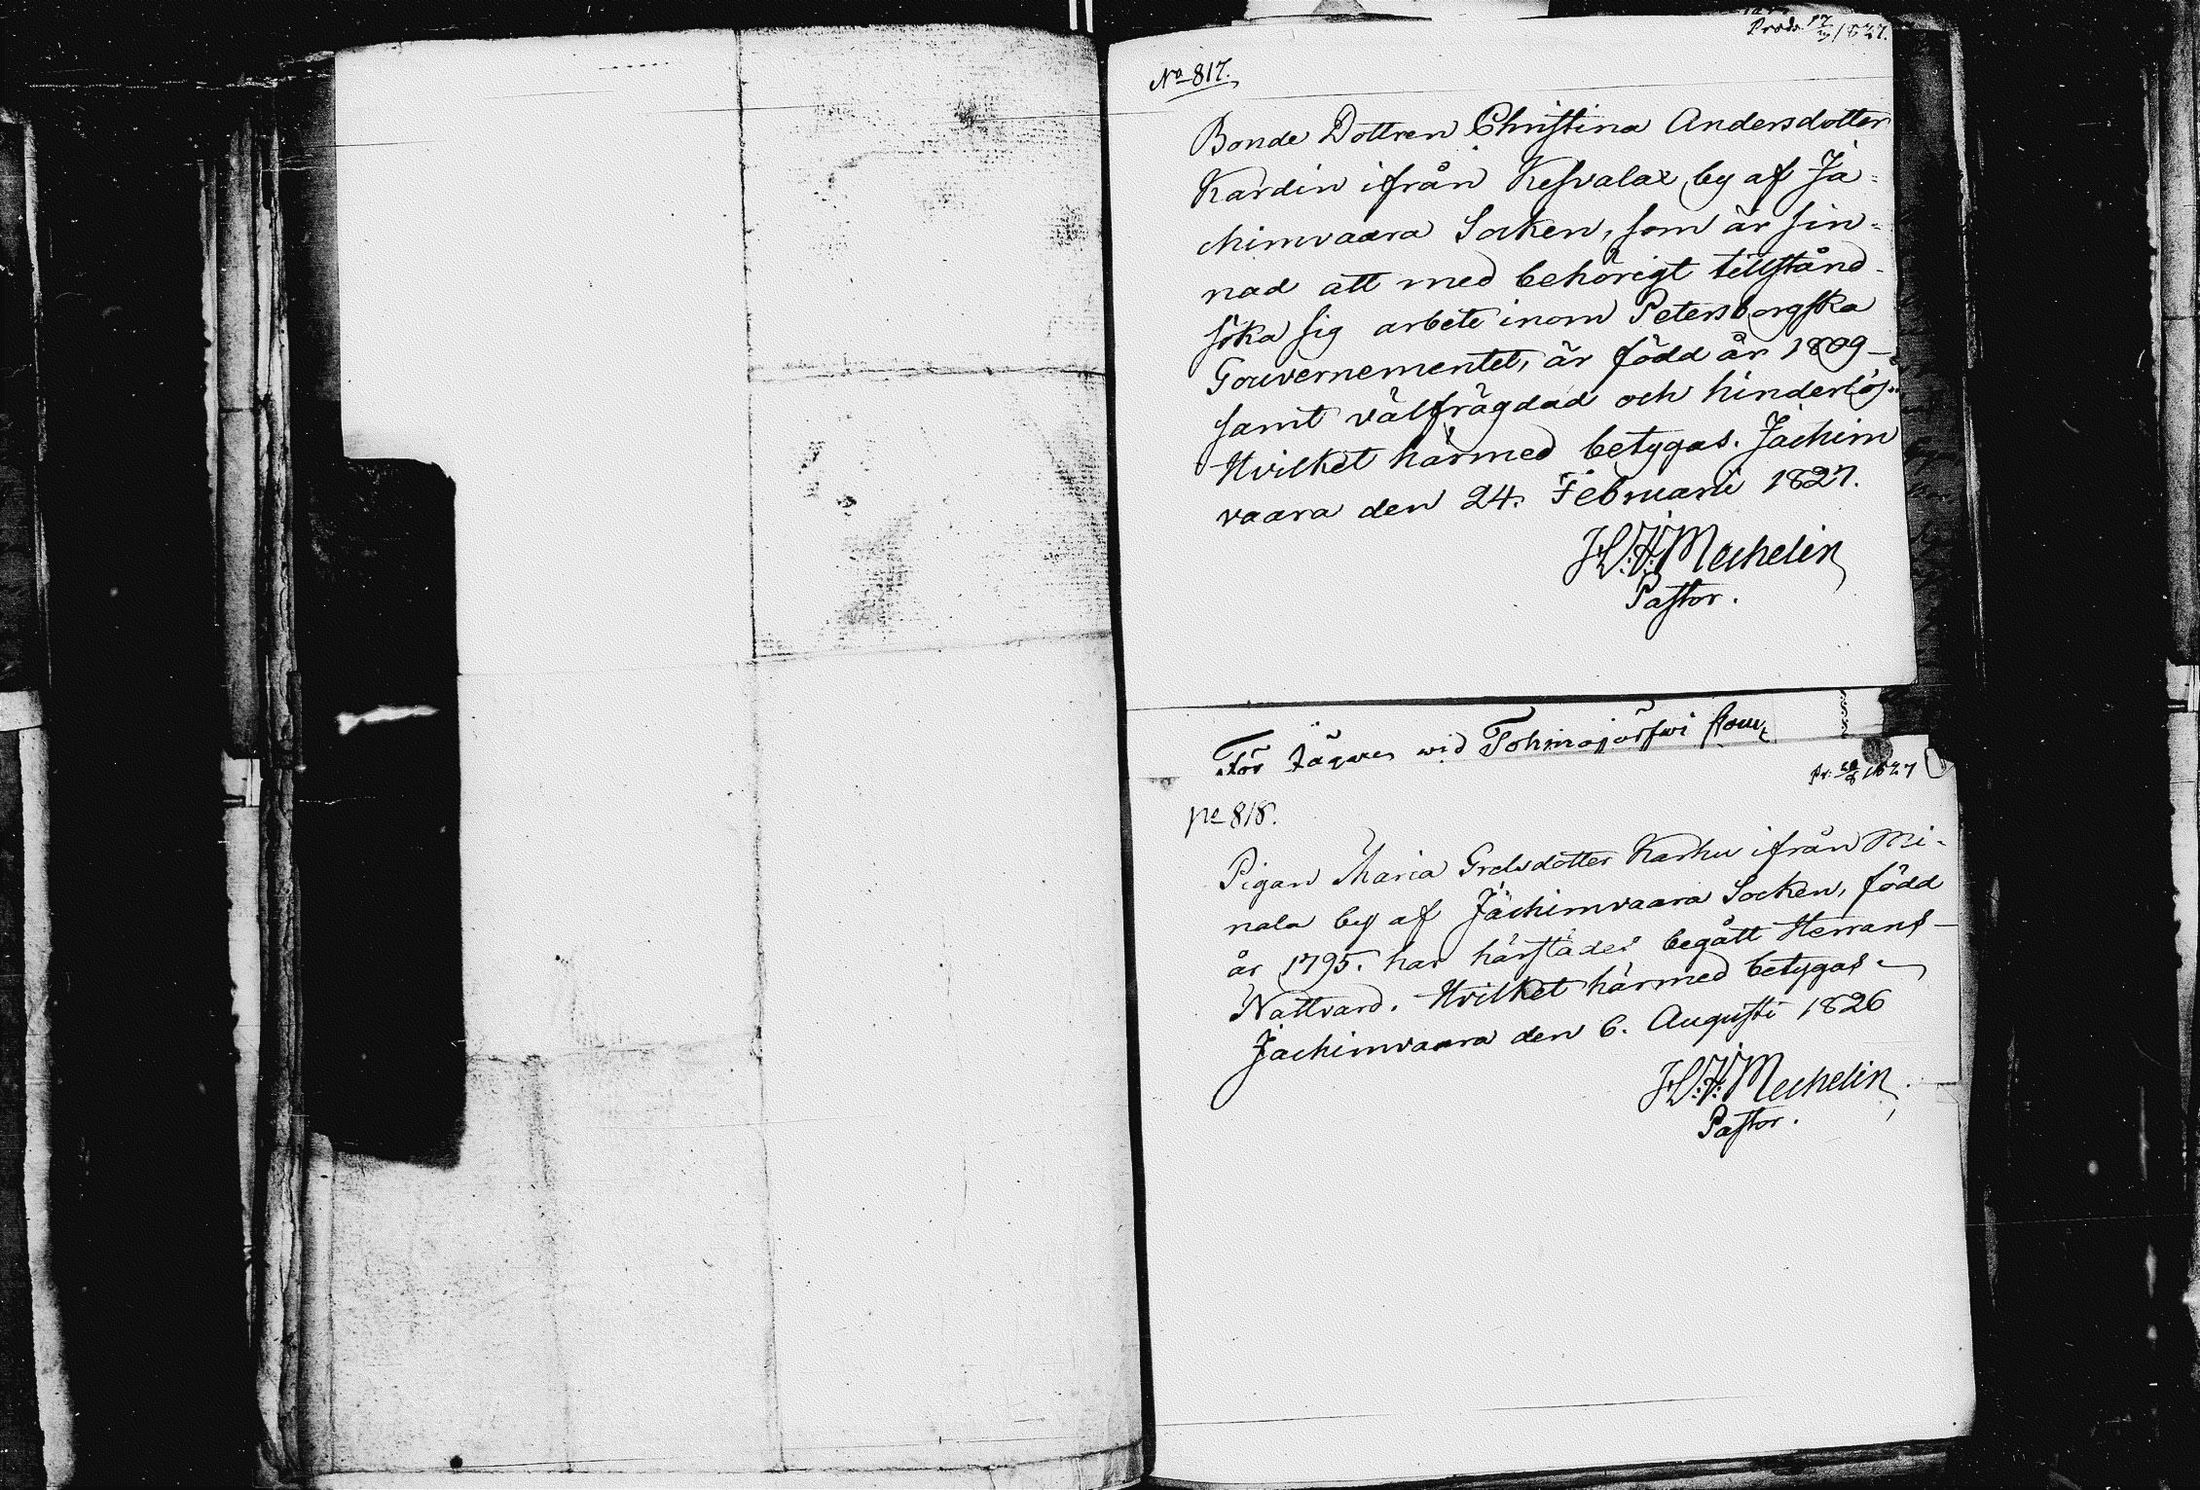 Prod. 17/3 1827.
No 817.
Bonde Dottren Christina Andersdotter
Kärdin ifrån Kesvalax by af Ja=
chimvaara Socken, som är sin=
nad att med behörigt tillstånd
söka sig arbete inom Petersborgska
Gouvernementet, är född år 1809 –
samt välfrägdad och hinderlös.
Hvilket härmed betygas. Jachim
vaara den 24. Februarii 1827.
H: Mechelin
Pastor.
För Jägaren wid Tohmajärfwi
Pr: 1827
No 818.
Pigan Maria Grelsdotter Karhu ifrån Mi-
nala by af Jachimvaara Socken, född
år 1795. har härstädes begått Herrans
Nattvard. Hvilket härmed betygas.
Jachimvaara den 6. Augusti 1826
H: Mechelin
Pastor.